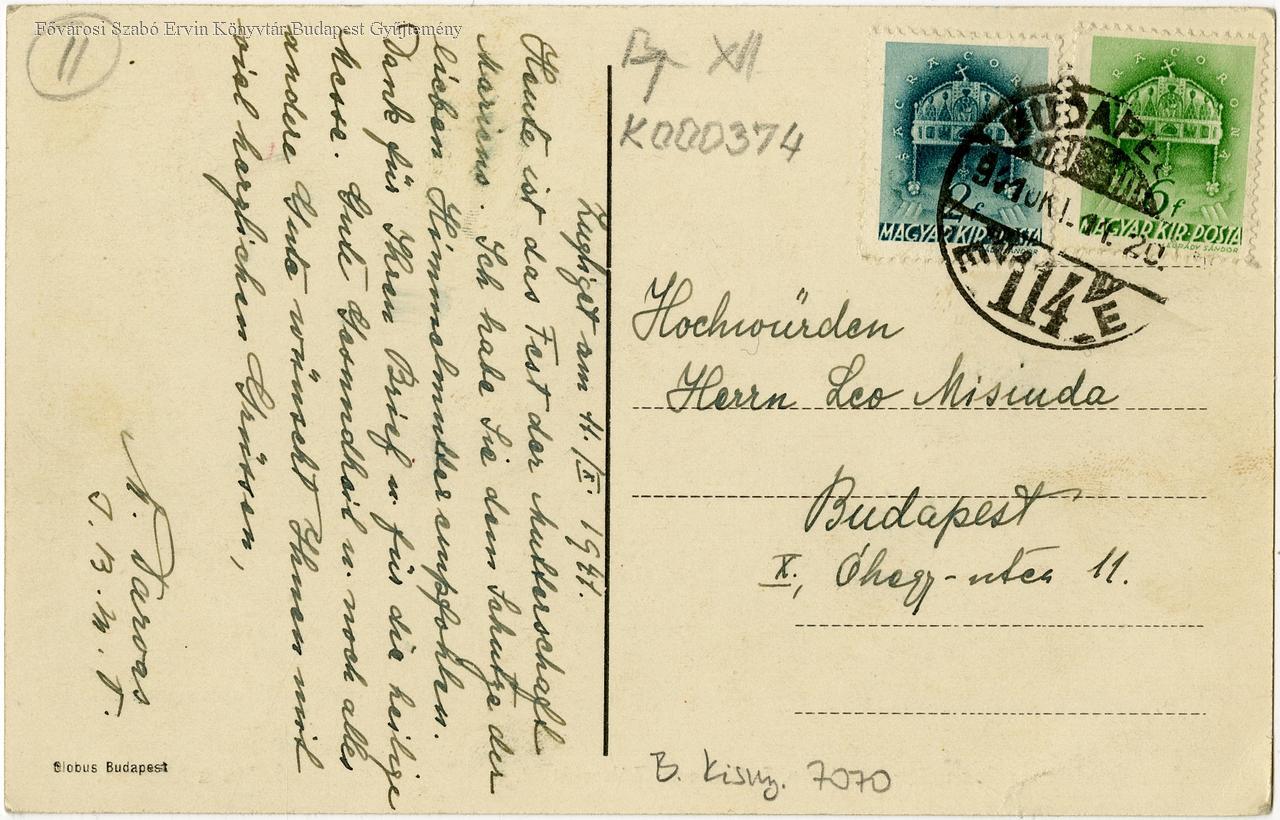 Fővárosi Szabó Ervin Könyvtár Budapest Gyűjtemény
11
Zugliget am 11./X. 1941.
Heute ist das Fest der Mutterschaft
Mariens. Ich habe Sie dem Schutze der
lieben Himmelmutter empfohlen.
Dank für Ihren Brief u. für die heilige
Messe. Gute Gesundheit u. noch alles
andere Gute wünscht Ihnen mit
viel herzlichen Grüssen,
N. Darvas
T. B. M. T.
Globus Budapest
Bp XII
K000374
SACRA CORONA
f
MAGYAR KIR. POSTA
SACRA CORONA
6 f
MAGYAR KIR. POSTA
LÉGRÁDY SÁNDOR
BUDAPEST
941 OKT. 11. 20.
114
Hochwürden
Herrn Leo Misinda
Budapest
X., Óhegy-utca 11.
B. Kisny. 7070